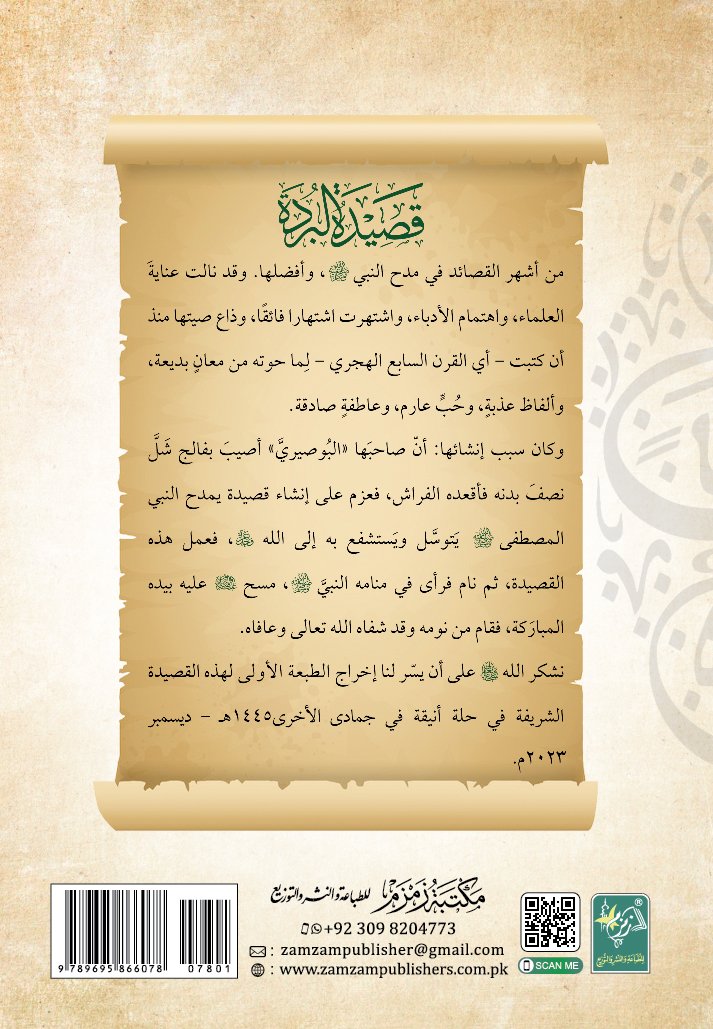 قَصِيْدَةُ الْبُرْدَة
من أشهر القصائد في مدح النبي ﷺ، وأفضلها. وقد نالت عنايةَ
العلماء، واهتمام الأدباء، واشتهرت اشتهارا فائقًا، وذاع صيتها منذ
أن كتبت – أي القرن السابع الهجري – لِما حوته من معانٍ بديعة،
وألفاظ عذبةٍ، وحُبٍّ عارم، وعاطفةٍ صادقة.
وكان سبب إنشائها: أنّ صاحبَها «البُوصيريَّ» أصيبَ بفالج شَلَّ
نصفَ بدنه فأقعده الفراش، فعزم على إنشاء قصيدة يمدح النبي
المصطفى ﷺ يَتوسَّل ويَستشفع به إلى الله، فعمل هذه
القصيدة، ثم نام فرأى في منامه النبيَّ ﷺ، مسح عليه بيده
المبارَكة، فقام من نومه وقد شفاه الله تعالى وعافاه.
نشكر الله على أن يسّر لنا إخراج الطبعة الأولى لهذه القصيدة
الشريفة في حلة أنيقة في جمادى الأخرى١٤٤٥هـ – ديسمبر
٢٠٢٣م.
مكتبة زمزم للطباعة والنشر والتوزيع
+92 309 8204773
: zamzampublisher@gmail.com
: www.zamzampublishers.com.pk
SCAN ME
زمزم
للطباعة والنشر والتوزيع
9 789695 866078 07801